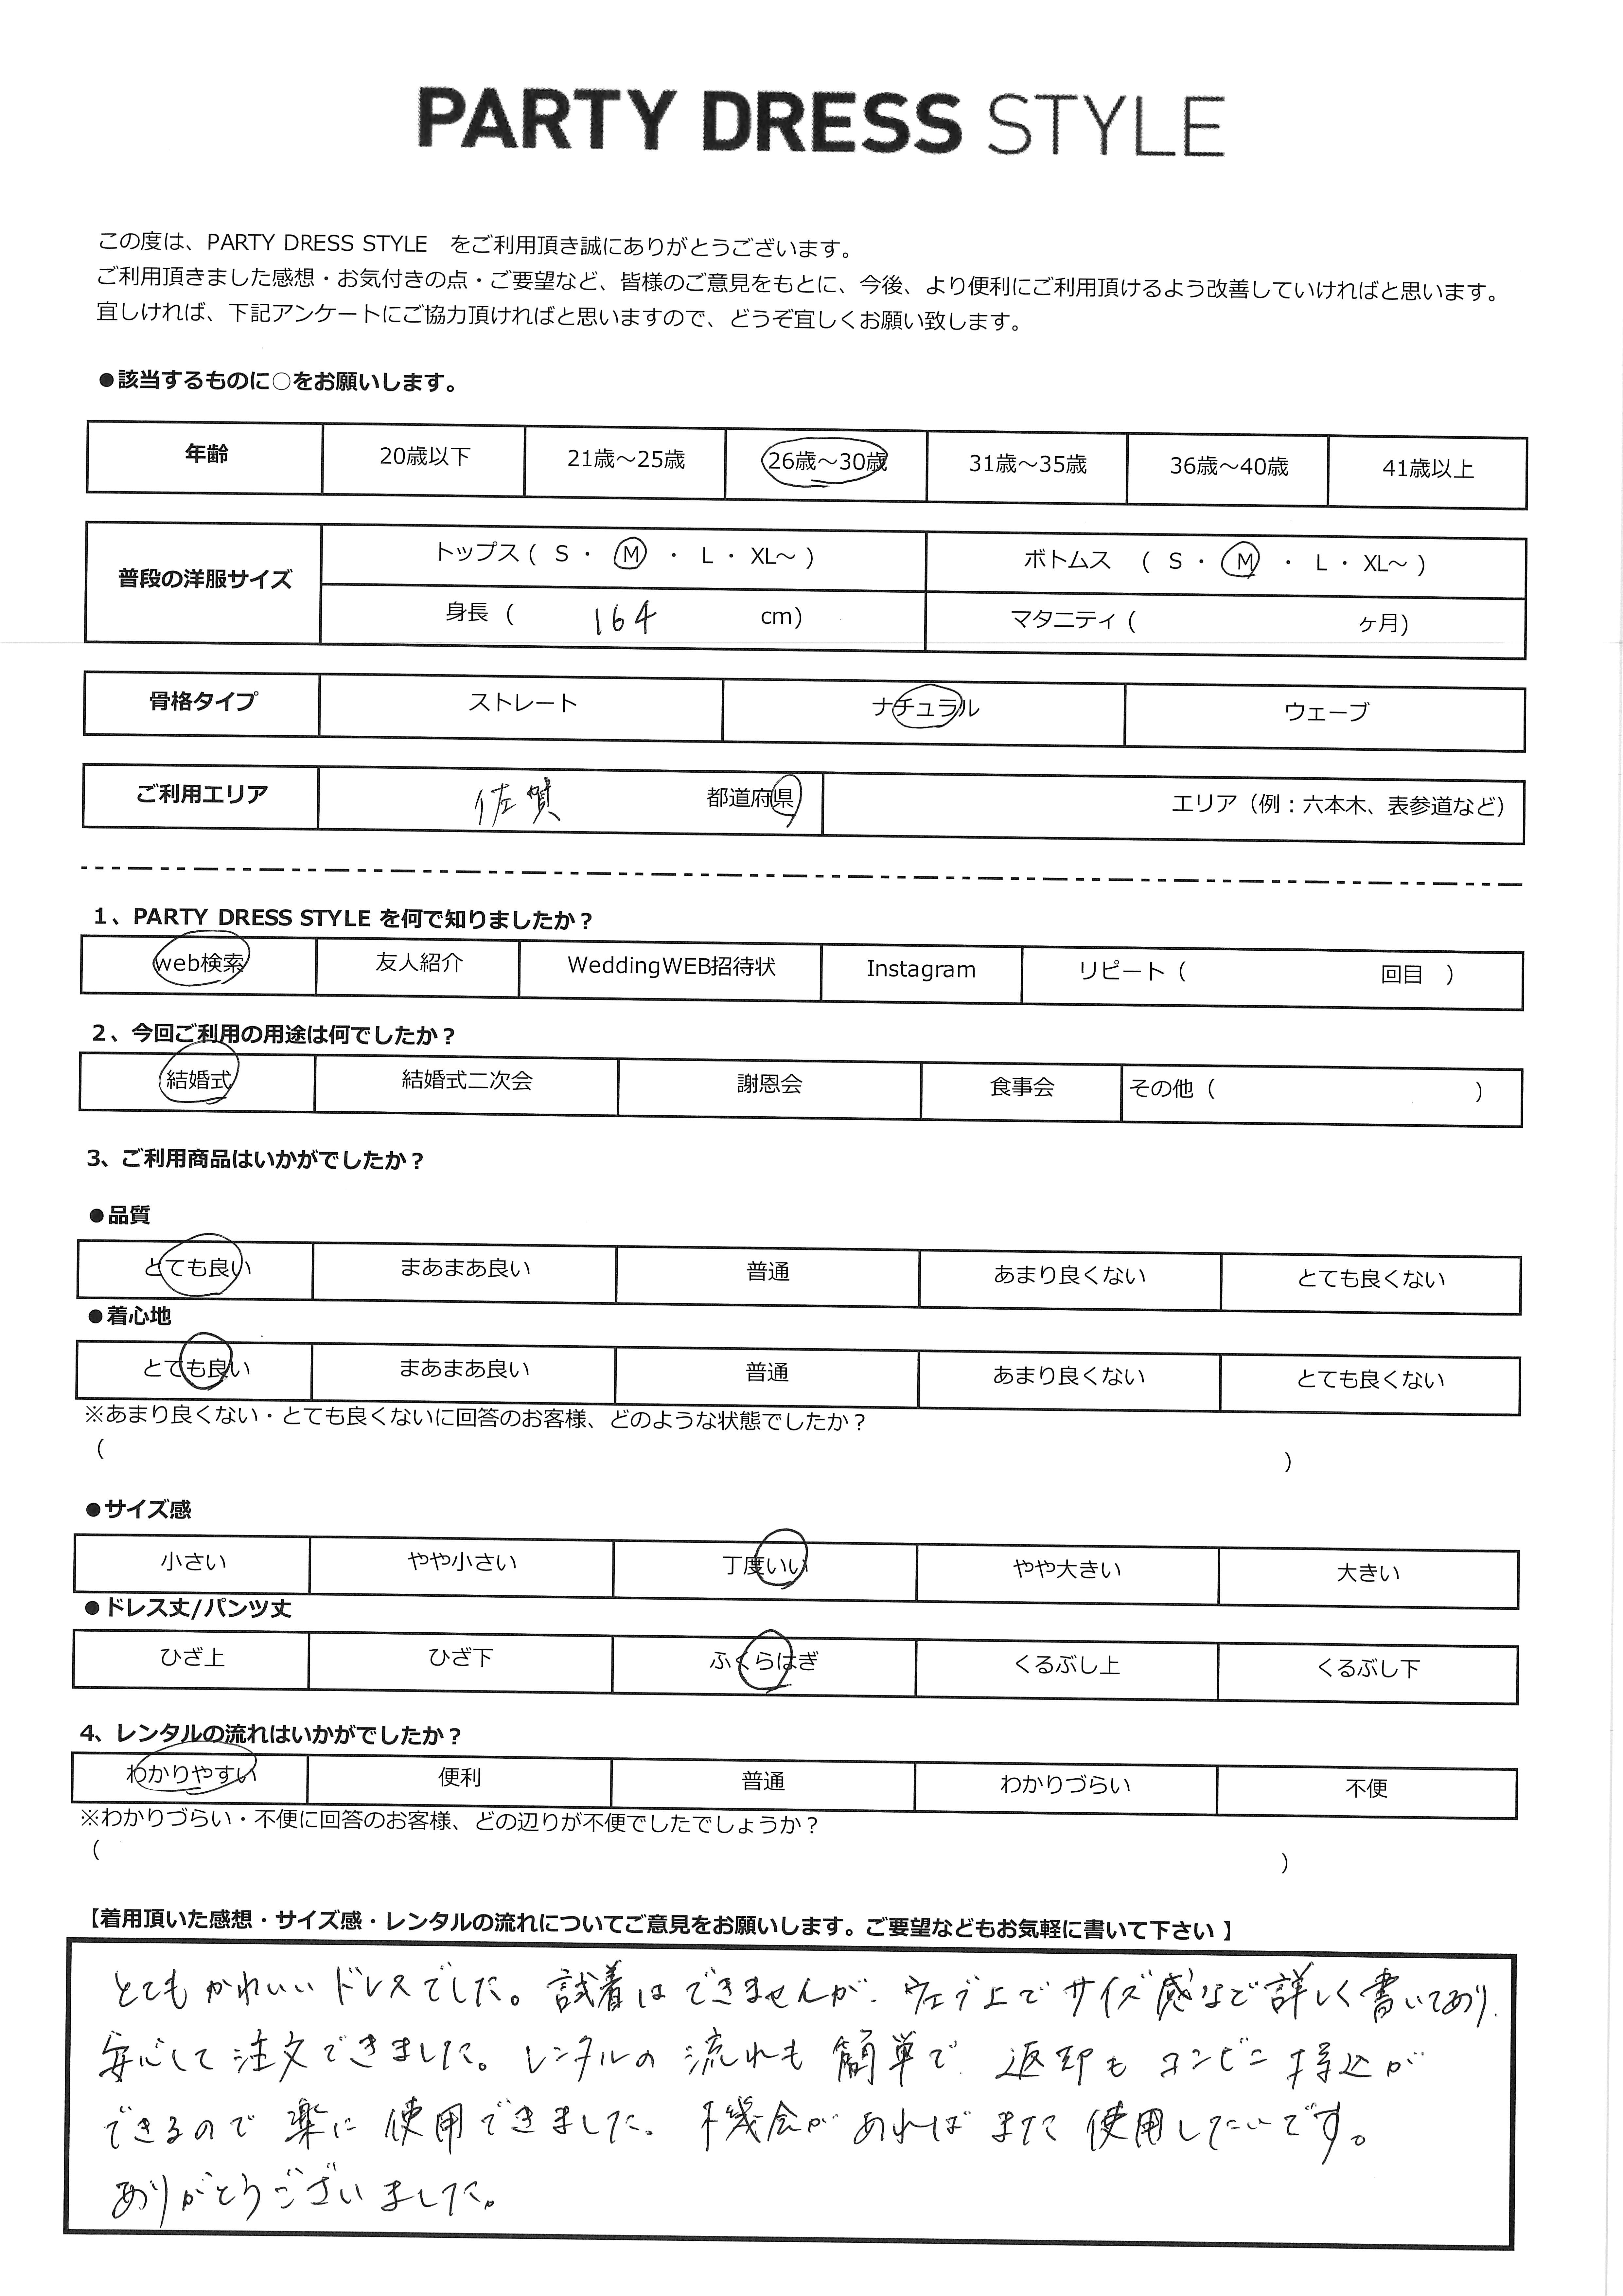 PARTY DRESS STYLE
この度は、PARTY DRESS STYLE　をご利用頂き誠にありがとうございます。
ご利用頂きました感想・お気付きの点・ご要望など、皆様のご意見をもとに、今後、より便利にご利用頂けるよう改善していければと思います。
宜しければ、下記アンケートにご協力頂ければと思いますので、どうぞ宜しくお願い致します。
●該当するものに○をお願いします。
年齢 20歳以下 21歳～25歳 26歳～30歳 31歳～35歳 36歳～40歳 41歳以上
普段の洋服サイズ
トップス ( S ・ M ・ L ・ XL～ ) ボトムス ( S ・ M ・ L ・ XL～ )
身長 ( 164 cm) マタニティ ( ヶ月)
骨格タイプ ストレート ナチュラル ウェーブ
ご利用エリア 佐賀 都道府県 エリア（例：六本木、表参道など）
1、PARTY DRESS STYLE を何で知りましたか？
web検索 友人紹介 WeddingWEB招待状 Instagram リピート（ 回目 ）
2、今回ご利用の用途は何でしたか？
結婚式 結婚式二次会 謝恩会 食事会 その他（ ）
3、ご利用商品はいかがでしたか？
●品質
とても良い まあまあ良い 普通 あまり良くない とても良くない
●着心地
とても良い まあまあ良い 普通 あまり良くない とても良くない
※あまり良くない・とても良くないに回答のお客様、どのような状態でしたか？
（ ）
●サイズ感
小さい やや小さい 丁度いい やや大きい 大きい
●ドレス丈/パンツ丈
ひざ上 ひざ下 ふくらはぎ くるぶし上 くるぶし下
4、レンタルの流れはいかがでしたか？
わかりやすい 便利 普通 わかりづらい 不便
※わかりづらい・不便に回答のお客様、どの辺りが不便でしたでしょうか？
（ ）
【着用頂いた感想・サイズ感・レンタルの流れについてご意見をお願いします。ご要望などもお気軽に書いて下さい 】
とてもかわいいドレスでした。試着はできませんが、ウェブ上でサイズ感など詳しく書いてあり、
安心して注文できました。レンタルの流れも簡単で 返却もコンビニ持込が
できるので楽に使用できました。機会があればまた使用したいです。
ありがとうございました。